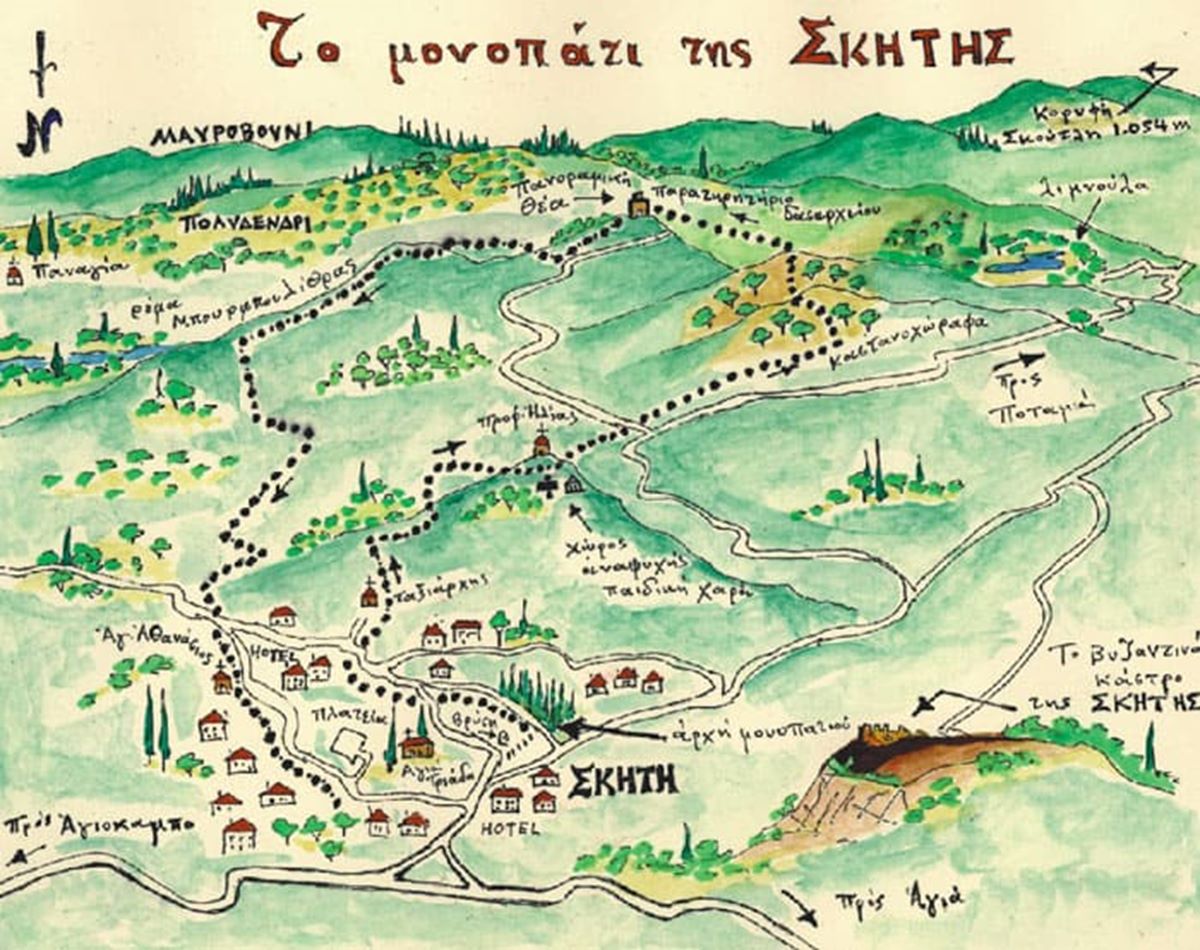 Το μονοπάτι της ΣΚΗΤΗΣ
N
ΜΑΥΡΟΒΟΥΝΙ
Κορυφή
Σκούτλη 1.054 m
Πανοραμική
Θέα
Παρατηρητήριο
δασαρχείου
λιμνούλα
ΠΟΛΥΔΕΝΔΡΙ
Παναγία
ρέμα
Μπουρμπουλίθρας
Καστανοχώραφα
Προς
Ποταμιά
Προφ. Ηλίας
χώρος
αναψυχής
παιδική χαρά
Ταξιάρχης
Άγ. Αθανάσιος
HOTEL
Πλατεία
Βρύση
Αγία
Τριάδα
ἀρχή μονοπατιού
Το Βυζαντινό
κάστρο
της ΣΚΗΤΗΣ
ΣΚΗΤΗ
HOTEL
Πρός Ἁγιόκαμπο
πρός Ἁγιά